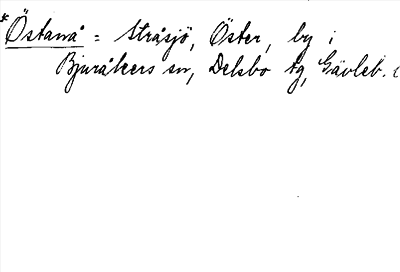 * Östanå = Stråsjö, Öster, by i
Bjuråkers sn, Delsbo tg, Gävleb. l